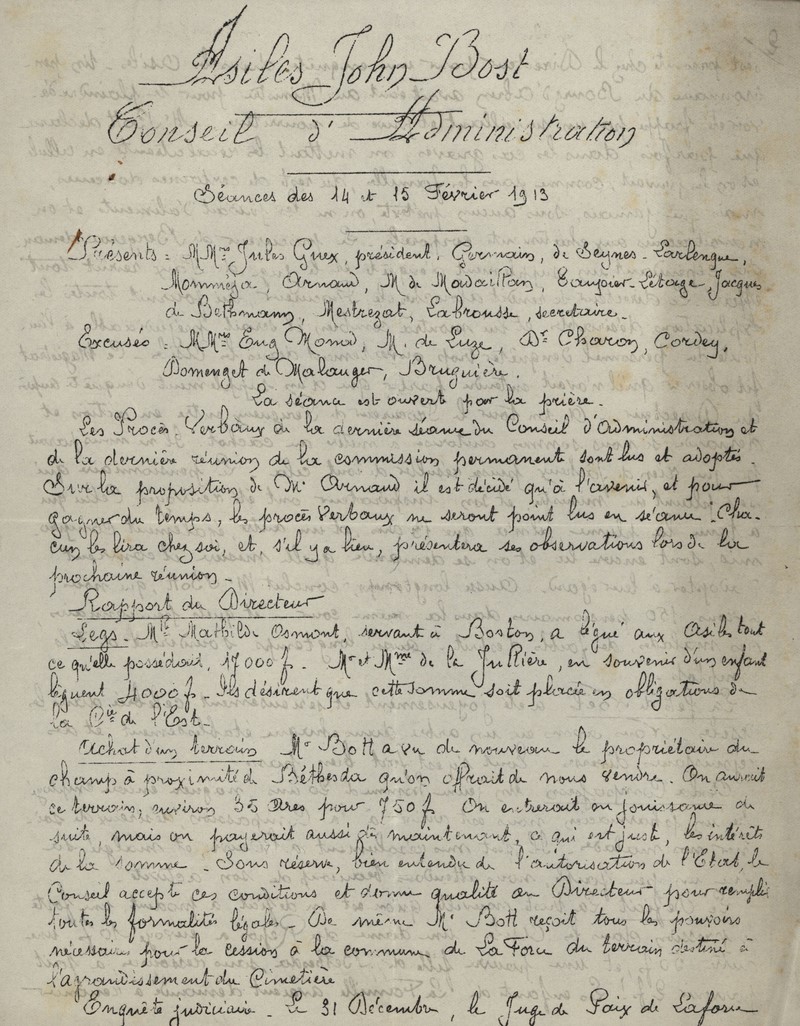 Asiles John Bost
Conseil d'Administration
Séances des 14 et 15 Février 1913
Présents : MMrs Jules Guex, président, Germain, de Seynes - Larlenque,
Momméja, Arnaud, M de Madaillan, Taupier-Létage, Jacques
de Bethmann, Mestrezat, Labrousse, secretaire.
Excusés : MMrs Eug Monod, M. de Luze, Dr Charon, Cordey,
Domenget de Malauger, Bruguière.
La séance est ouvert par la prière.
Les Procès-Verbaux de la dernière séance du Conseil d'Administration et
de la dernière réunion de la commission permanent sont lus et adoptés.
Sur la proposition de Mr Arnaud il est décidé qu'à l'avenir, et pour
gagner du temps, les procès Verbaux ne seront point lus en séance. Cha-
cun les lira chez soi, et, s'il y a lieu, présentera ses observations lors de la
prochaine réunion -
Rapport du Directeur
Legs. Mlle Mathilde Osmont, servant à Boston, a légué aux Asiles tout
ce qu'elle possédait, 17000 f. Mr et Mme de la Jullière, en souvenir d'un enfant
lèguent 4000 f - Ils désirent que cette somme soit placée en obligations de
la Cie de l'Est.
Achat d'un terrain Mr Bott a vu de nouveau le propriétaire du
champ à proximité de Béthesda qu'on offrait de nous vendre. On aurait
ce terrain, environ 35 Ares pour 750 f On entrerait en jouissance de
suite, mais on payerait aussi dès maintenant, ce qui est juste, les intérêts
de la somme - Sous réserve, bien entendu de l'autorisation de l'Etat, le
Conseil accepte ces conditions et donne qualité au Directeur pour remplir
toutes les formalités légales - De même Mr Bott reçoit tous les pouvoirs
nécessaires pour la cession à la commune de La Force du terrain destiné à
l'agrandissement du Cimetière
Enquête judiciaire - Le 31 Décembre, le Juge de Paix de Laforce